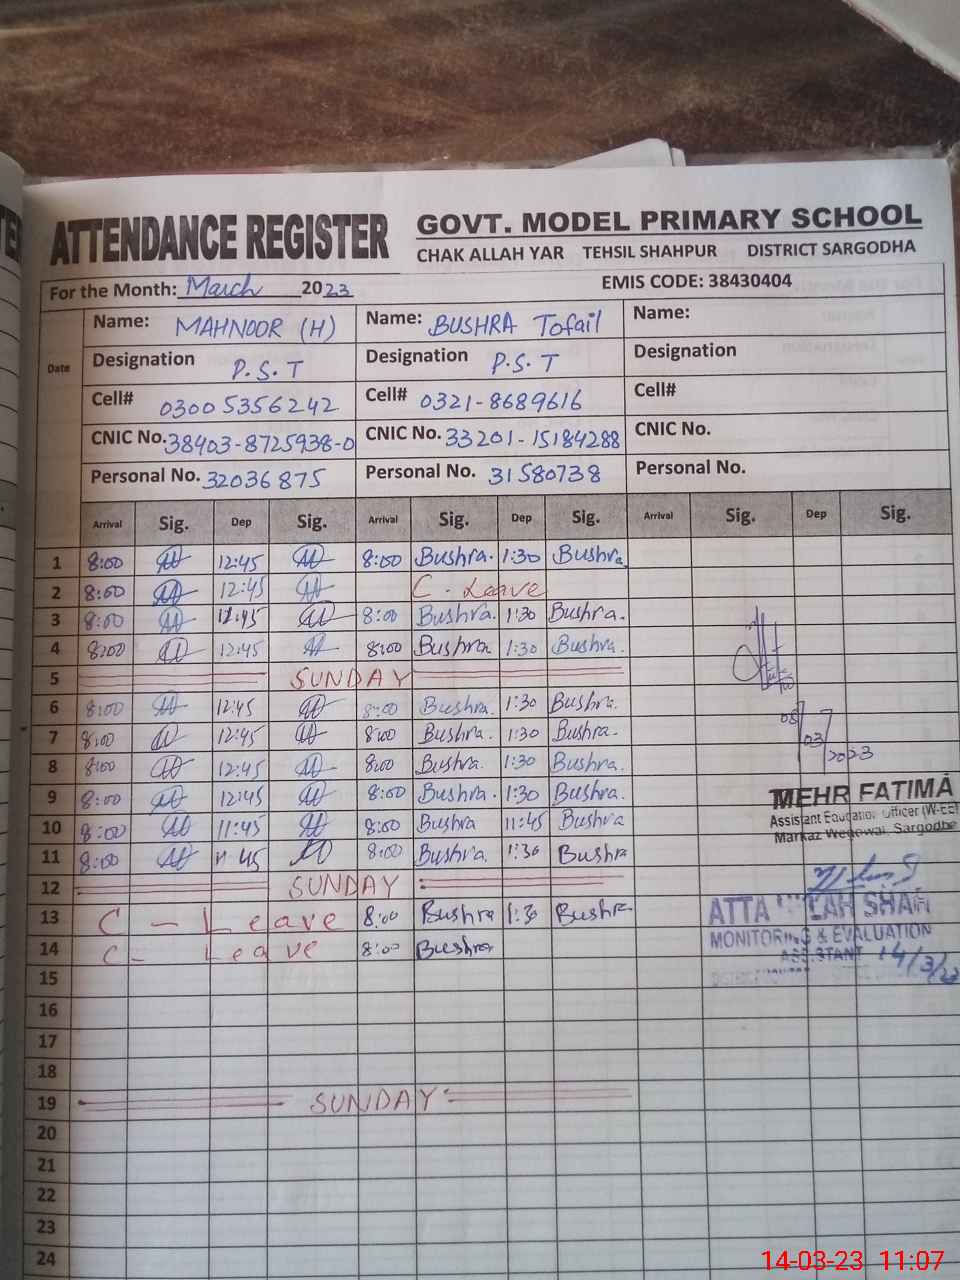 ATTENDANCE REGISTER
GOVT. MODEL PRIMARY SCHOOL
CHAK ALLAH YAR TEHSIL SHAHPUR DISTRICT SARGODHA
For the Month: March 2023 EMIS CODE: 38430404
Date
Name: MAHNOOR (H) Name: BUSHRA Tofail Name:
Designation P.S.T Designation P.S.T Designation
Cell# 03005356242 Cell# 0321-8689616 Cell#
CNIC No. 38403-8725938-0 CNIC No. 33201-15184288 CNIC No.
Personal No. 32036875 Personal No. 31580738 Personal No.
Arrival Sig. Dep Sig. Arrival Sig. Dep Sig. Arrival Sig. Dep Sig.
1 8:00 12:45 8:00 Bushra. 1:30 Bushra.
2 8:00 12:45 C - Leave
3 8:00 12:45 8:00 Bushra. 1:30 Bushra.
4 8:00 12:45 8:00 Bushra 1:30 Bushra.
5 SUNDAY
6 8:00 12:45 8:00 Bushra. 1:30 Bushra.
7 8:00 12:45 8:00 Bushra. 1:30 Bushra.
8 8:00 12:45 8:00 Bushra. 1:30 Bushra.
9 8:00 12:45 8:00 Bushra. 1:30 Bushra.
10 8:00 11:45 8:00 Bushra 11:45 Bushra
11 8:00 11 45 8:00 Bushra. 1:30 Bushra
12 SUNDAY
13 C - Leave 8:00 Bushra 1:30 Bushra
14 C - Leave 8:00 Bushra
15
16
17
18
19 SUNDAY
20
21
22
23
24
08
03
2023
MEHR FATIMA
Assistant Education Officer (W-EE)
Markaz Wegowal, Sargodha
SHAH
MONITORING & EVALUATION
ASSISTANT 14/3/23
14-03-23 11:07